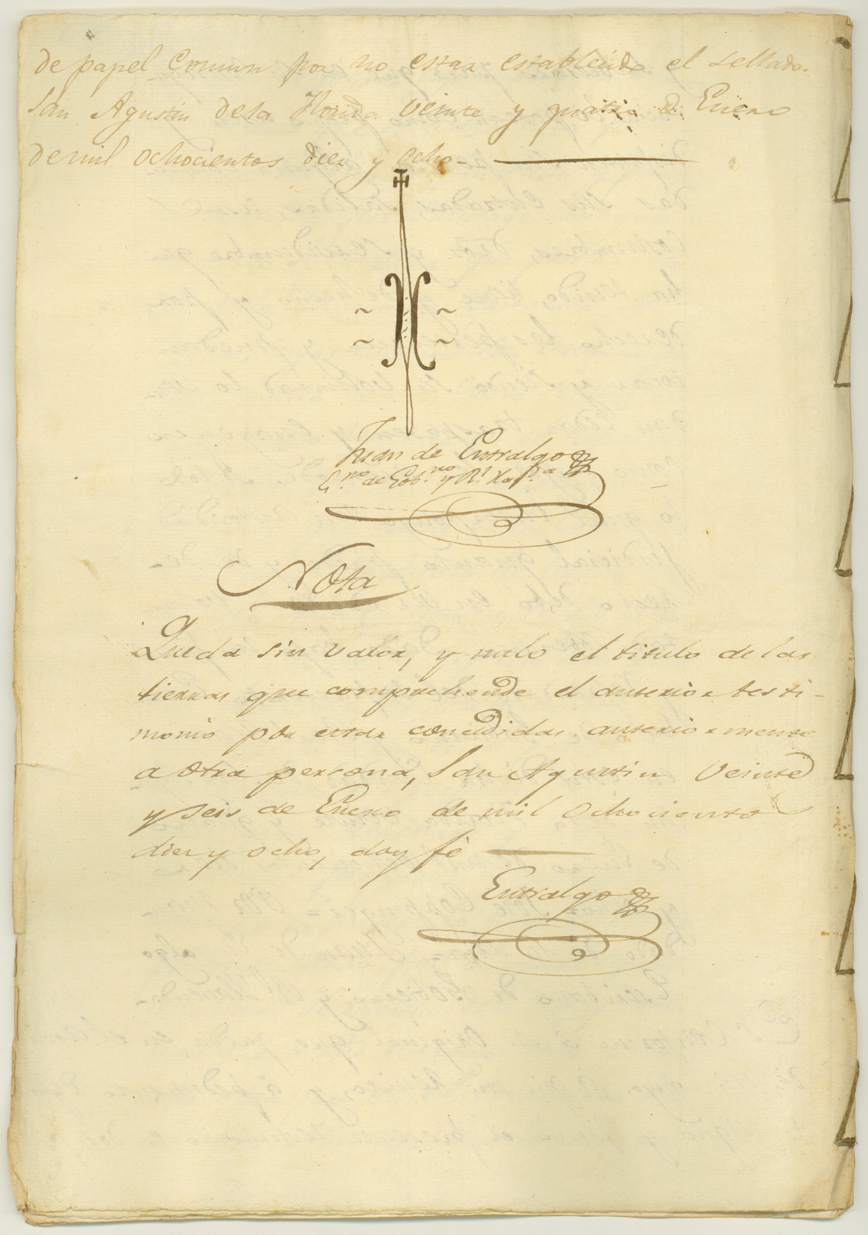 de papel comun por no estar establecido el sellado.
San Agustin de la Florida veinte y quatro de Enero
de mil ochocientos diez y ocho—
Juan de Entralgo
Es.no de Gob.no y R.l Haz.da
Nota
Queda sin valor, y nulo el titulo de las
tierras que comprehende el anterior testi-
monio por estar concedidas anteriormente
a otra persona, San Agustin veinte
y seis de Enero de mil ochociento
diez y ocho, doy fé —
Entralgo